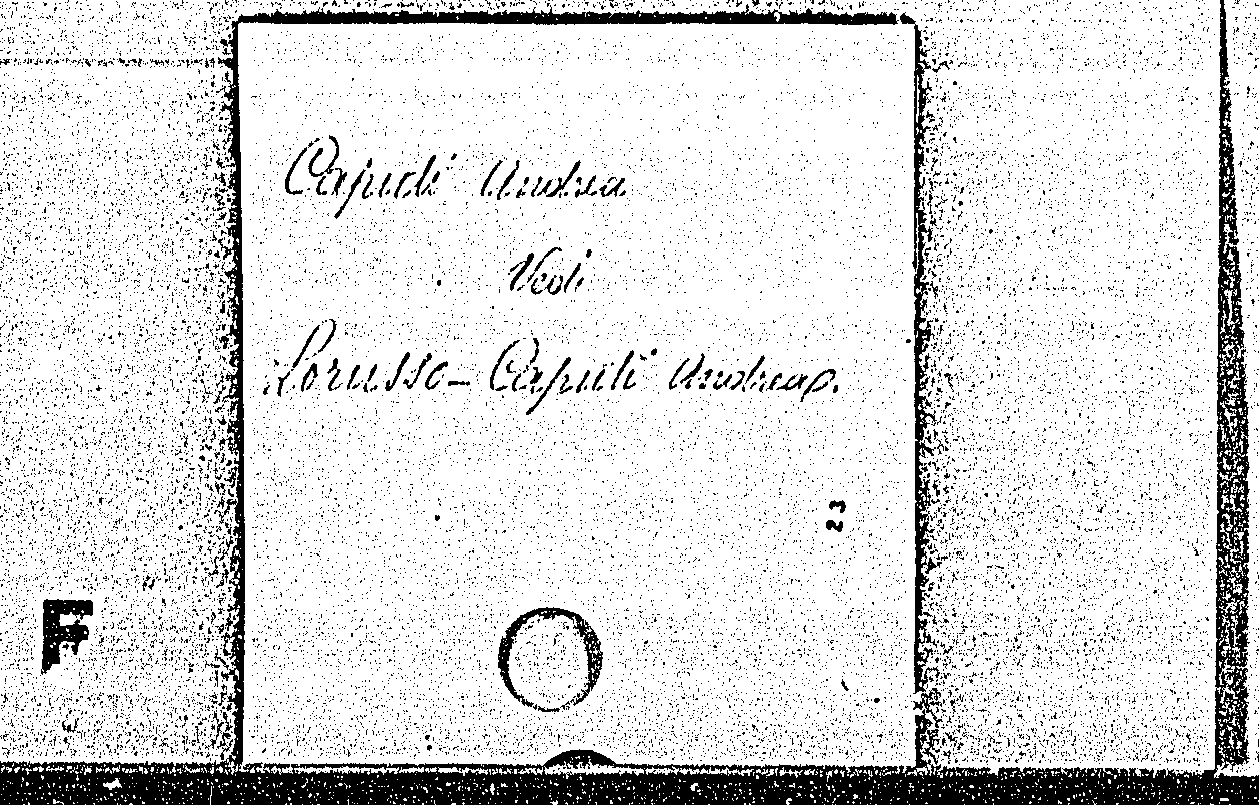 Caputi Andrea
Vedi
Lorusso-Caputi Andrea
23
F